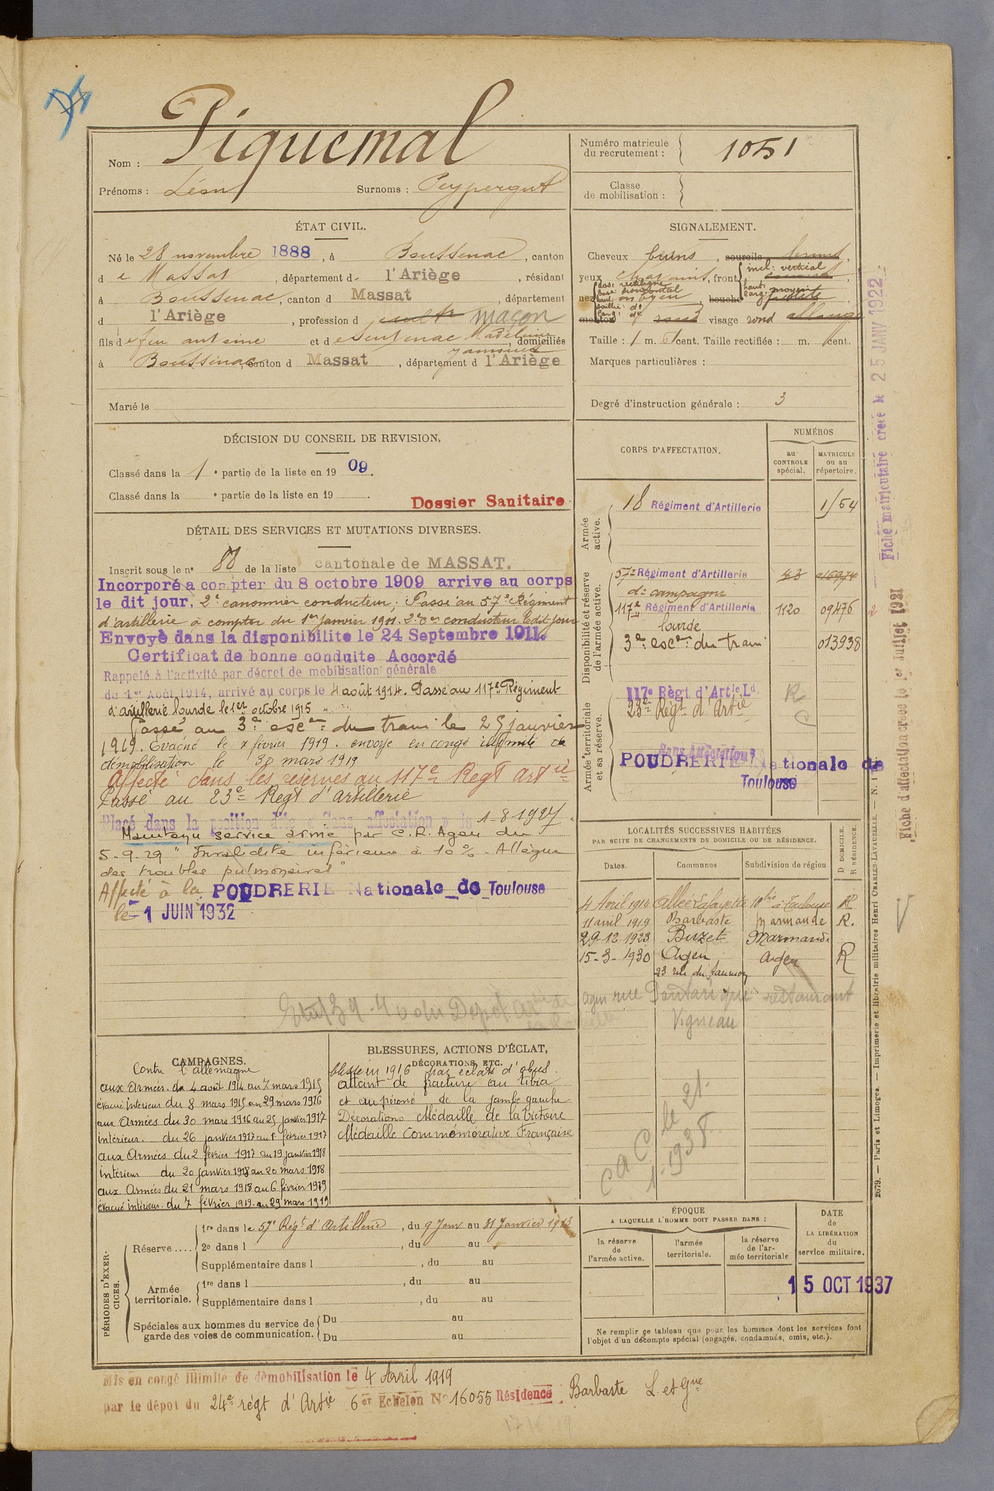 Piquemal
Nom :
Prénoms : Léon Surnoms : Peypergut
Numéro matricule du recrutement : 1051
Classe de mobilisation :
ÉTAT CIVIL.
Né le 28 novembre 1888, à Boussenac, canton
de Massat, département d l'Ariège, résidant
à Boussenac, canton d Massat, département
d l'Ariège, profession d maçon
fils de feu antoine et de Sentenac Madeleine, domiciliés
à Boussenac, canton d Massat, département d l'Ariège
Marié le
SIGNALEMENT.
Cheveux bruns, sourcils
yeux, front incl: vertical
nez dos: rectiligne base: horizontal haut: moyen, bouche
visage rond
Taille : 1 m. 6 cent. Taille rectifiée : m. cent.
Marques particulières :
Degré d'instruction générale : 3
DÉCISION DU CONSEIL DE REVISION.
Classé dans la 1re partie de la liste en 1909.
Classé dans la e partie de la liste en 19 .
Dossier Sanitaire
DÉTAIL DES SERVICES ET MUTATIONS DIVERSES.
Inscrit sous le n° 88 de la liste cantonale de MASSAT.
Incorporé à compter du 8 octobre 1909 arrive au corps
le dit jour. 2e canonnier conducteur; Passé au 57e Régiment
d'artillerie à compter du 1er janvier 1911. 2e Cer conducteur ledit jour
Envoyé dans la disponibilité le 24 Septembre 1911.
Certificat de bonne conduite Accordé
Rappelé à l'activité par décret de mobilisation générale
du 1er Août 1914, arrivé au corps le 4 août 1914. Passé au 117e Régiment
d'artillerie lourde le 1er octobre 1915
Passé au 3e escon du train le 25 janvier
1919. Evacué le 7 février 1919. envoyé en congé illimité de
démobilisation le 30 mars 1919
Affecté dans les réserves au 117e Regt Artie
Passé au 23e Regt d'artillerie
Placé dans la position dite "Sans affectation" le 1-8-1927.
Maintenu service armé par C.R. Agen du
5-9-29 "Invalidité inférieure à 10% - Allègue
des troubles pulmonaires"
Affecté à la POUDRERIE Nationale de Toulouse
le 1 JUIN 1932
CORPS D'AFFECTATION.
NUMÉROS
AU CONTROLE SPÉCIAL.
MATRICULE OU AU RÉPERTOIRE.
Armée active.
18 Régiment d'Artillerie 1/54
Disponibilité et réserve de l'armée active.
57e Régiment d'Artillerie
de campagne
117e Régiment d'Artillerie 1120 09476
lourde
3e escon du train 013938
Armée territoriale et sa réserve.
117e Régt d'Artie Ld
23e Regt d'Artie
Sans Affectation
POUDRERIE Nationale de
Toulouse
R
C
LOCALITÉS SUCCESSIVES HABITÉES
PAR SUITE DE CHANGEMENTS DE DOMICILE OU DE RÉSIDENCE.
Dates. Communes Subdivision de région D. DOMICILE. R. RÉSIDENCE.
11 avril 1919 Barbaste Marmande R.
29-12-1923 Buzet Marmande
15-3-1930 Agen Agen R
agen rue restaurant
Vigneau
le 21-
1-1938
CAMPAGNES.
Contre l'Allemagne
aux Armées du 4 août 1914 au 7 mars 1915
évacué intérieur du 8 mars 1915 au 29 mars 1916
aux Armées du 30 mars 1916 au 25 janvier 1917
intérieur. du 26 janvier 1917 au 1 février 1917
aux Armées du 2 février 1917 au 19 janvier 1918
intérieur du 20 janvier 1918 au 20 mars 1918
aux Armées du 21 mars 1918 au 6 février 1919
évacué intérieur. du 7 février 1919. au 29 mars 1919
BLESSURES, ACTIONS D'ÉCLAT,
DÉCORATIONS, ETC.
blessé en 1916 par éclats d'obus.
atteint de fracture au tibia
et au péroné de la jambe gauche
Décorations Médaille de la Victoire
Médaille Commémorative Française
PÉRIODES D'EXERCICES.
Réserve....
1re dans le 57e Régt d'Artillerie, du 9 Janv au 31 Janvier 1913
2e dans l , du au
Supplémentaire dans l , du au
Armée territoriale.
1re dans l , du au
Supplémentaire dans l , du au
Spéciales aux hommes du service de garde des voies de communication.
Du au
Du au
ÉPOQUE
A LAQUELLE L'HOMME DOIT PASSER DANS :
la réserve de l'armée active.
l'armée territoriale.
la réserve de l'armée territoriale
DATE DE LA LIBÉRATION du service militaire.
15 OCT 1937
Ne remplir ce tableau que pour les hommes dont les services font
l'objet d'un décompte spécial (engagés, condamnés, omis, etc.).
Mis en congé illimité de démobilisation le 4 Avril 1919
par le dépôt du 24e régt d'Artie 6er Echelon N° 16055 Résidence Barbaste L et Gne
Fiche matriculaire créée le 25 JANV 1922
Fiche d'affectation créée le 1er Juillet 1931
2679. — Paris et Limoges. — Imprimerie et librairie militaires Henri CHARLES-LAVAUZELLE.